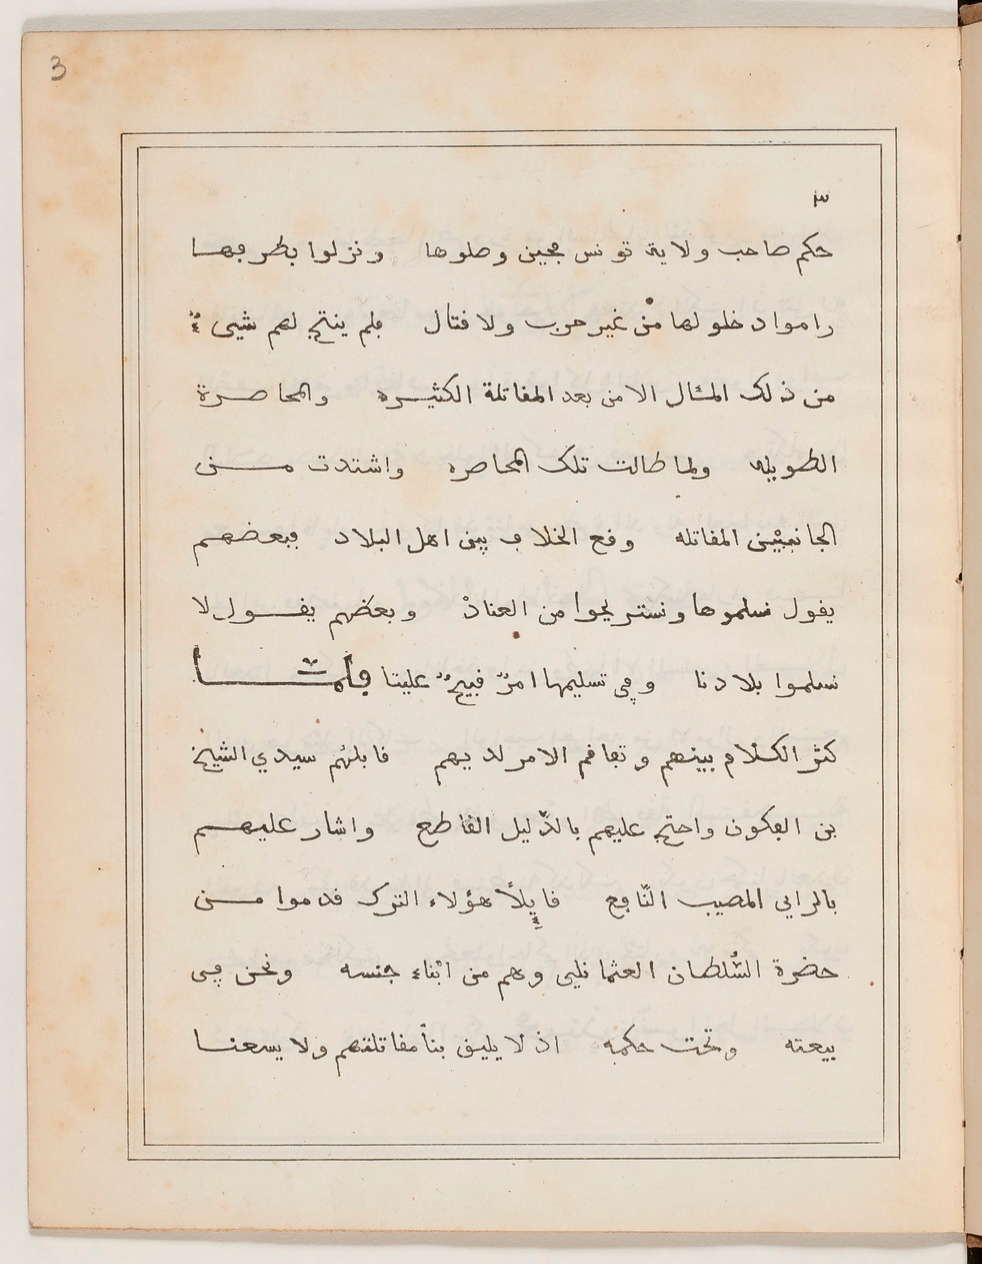 3
٣
حكم صاحب ولاية تونس فحين وصلوها ونزلوا بطرفها
راموا دخولها من غير حرب ولا قتال فلم ينتج لهم شيىء
من ذلك المثال الا من بعد المقاتلة الكثيره والمحاصرة
الطويله ولما طالت تلك المحاصره واشتدت من
الجانبين المقاتله وقع الخلاف بين اهل البلاد فبعضهم
يقول نسلموها ونستريحوا من العناد وبعضهم يقول لا
نسلموا بلادنا وفي تسليمها امرٌ قبيحٌ علينا فلمّا
كثر الكلام بينهم وتفاقم الامر لديهم قابلهُم سيدي الشيخ
بن الفكون واحتج عليهم بالدّليل القاطع واشار عليهم
بالرايي المصيب النّافع قايِلاً هؤلاء الترك قدموا من
حضرة السُّلطان العثمانلي وهم من ابْناء جنسه ونحن في
بيعته وتحت حكمه اذ لا يليق بنا مقاتلتهم ولا يسعنا